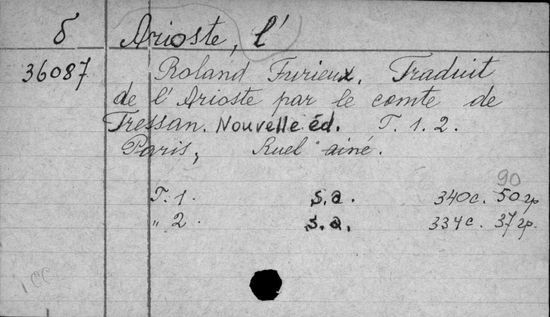 б Arioste, l'
36087 Roland Furieux. Traduit
de l'Arioste par le comte de
Tressan. Nouvelle éd. T. 1. 2.
Paris, Ruel ainé.
90
T. 1. s.a. 340c. 50 гр.
" 2. s.a. 334c. 37 гр.
1CC